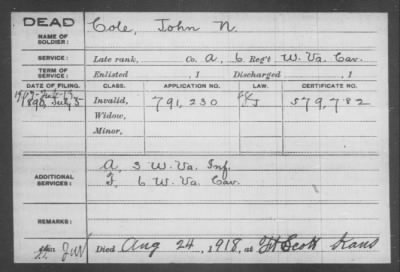 DEAD
NAME OF SOLDIER: Cole, John N.
SERVICE: Late rank, Co. A, 6 Reg't W. Va. Cav.
TERM OF SERVICE: Enlisted , 1 Discharged , 1
DATE OF FILING. CLASS. APPLICATION NO. LAW. CERTIFICATE NO.
1890, July 5 Invalid, 791,230 579,782
Widow,
Minor,
ADDITIONAL SERVICES: A, 3 W. Va. Inf.
F, 6 W. Va. Cav.
REMARKS:
Died Aug 24, 1918, at Ft Scott Kans